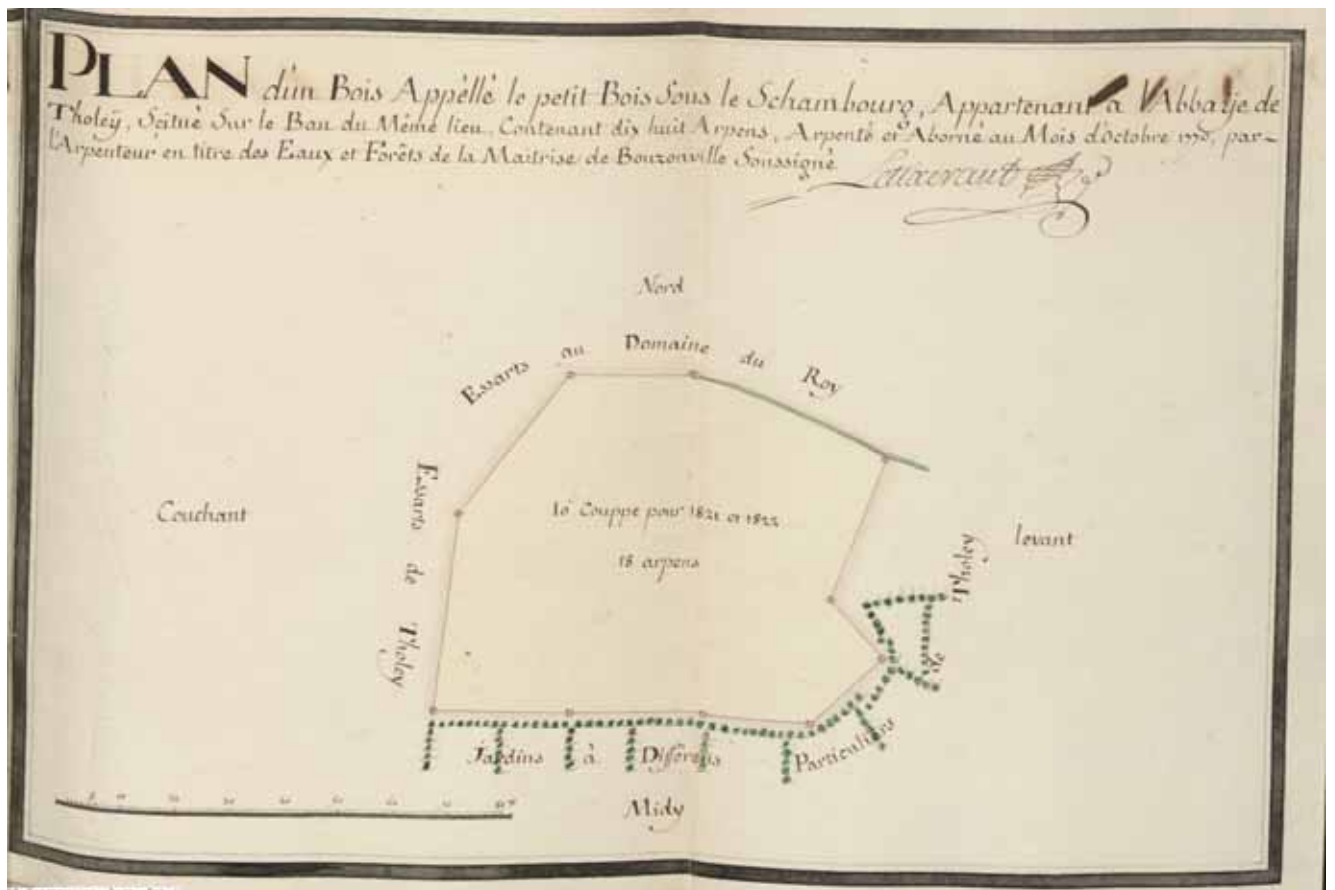 PLAN d'un Bois Appèllé le petit Bois Sous le Schambourg, Appartenant à l'Abbaije de
Tholeÿ, Scitué Sur le Ban du Même lieu, Contenant dix huit Arpens, Arpenté et Aborné au Mois d'octobre par
l'Arpenteur en titre des Eaux et Forêts de la Maitrise de Bouzonville Soussigné
Nord
Essarts au Domaine du Roy
Essarts de Tholey
Couchant
10e Couppe pour 1821 et 1822
18 arpens
levant
Jardins à Differens Particuliers de Tholey
Midy